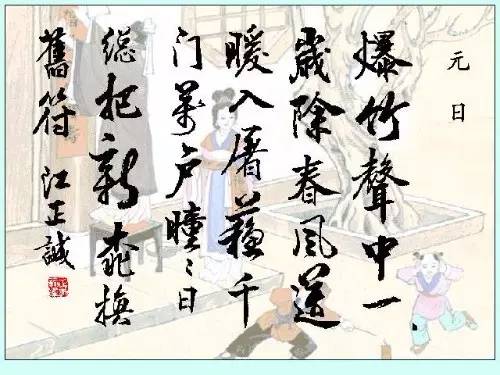 元日
爆竹聲中一
歲除春風送
暖入屠蘇千
门萬户曈々日
總把新桃換
舊符 江正誠